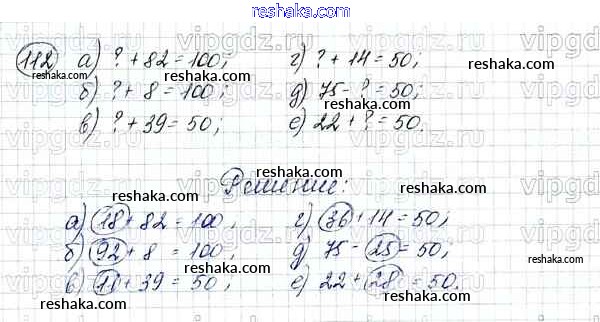 reshaka.com
112 а) ? + 82 = 100; г) ? + 14 = 50;
reshaka.com
б) ? + 8 = 100; д) 75 - ? = 50;
reshaka.com
в) ? + 39 = 50; е) 22 + ? = 50.
reshaka.com
Решение:
reshaka.com
а) 18 + 82 = 100; г) 36 + 14 = 50;
reshaka.com reshaka.com
б) 92 + 8 = 100; д) 75 - 25 = 50;
reshaka.com reshaka.com
в) 11 + 39 = 50; е) 22 + 28 = 50.
reshaka.com reshaka.com